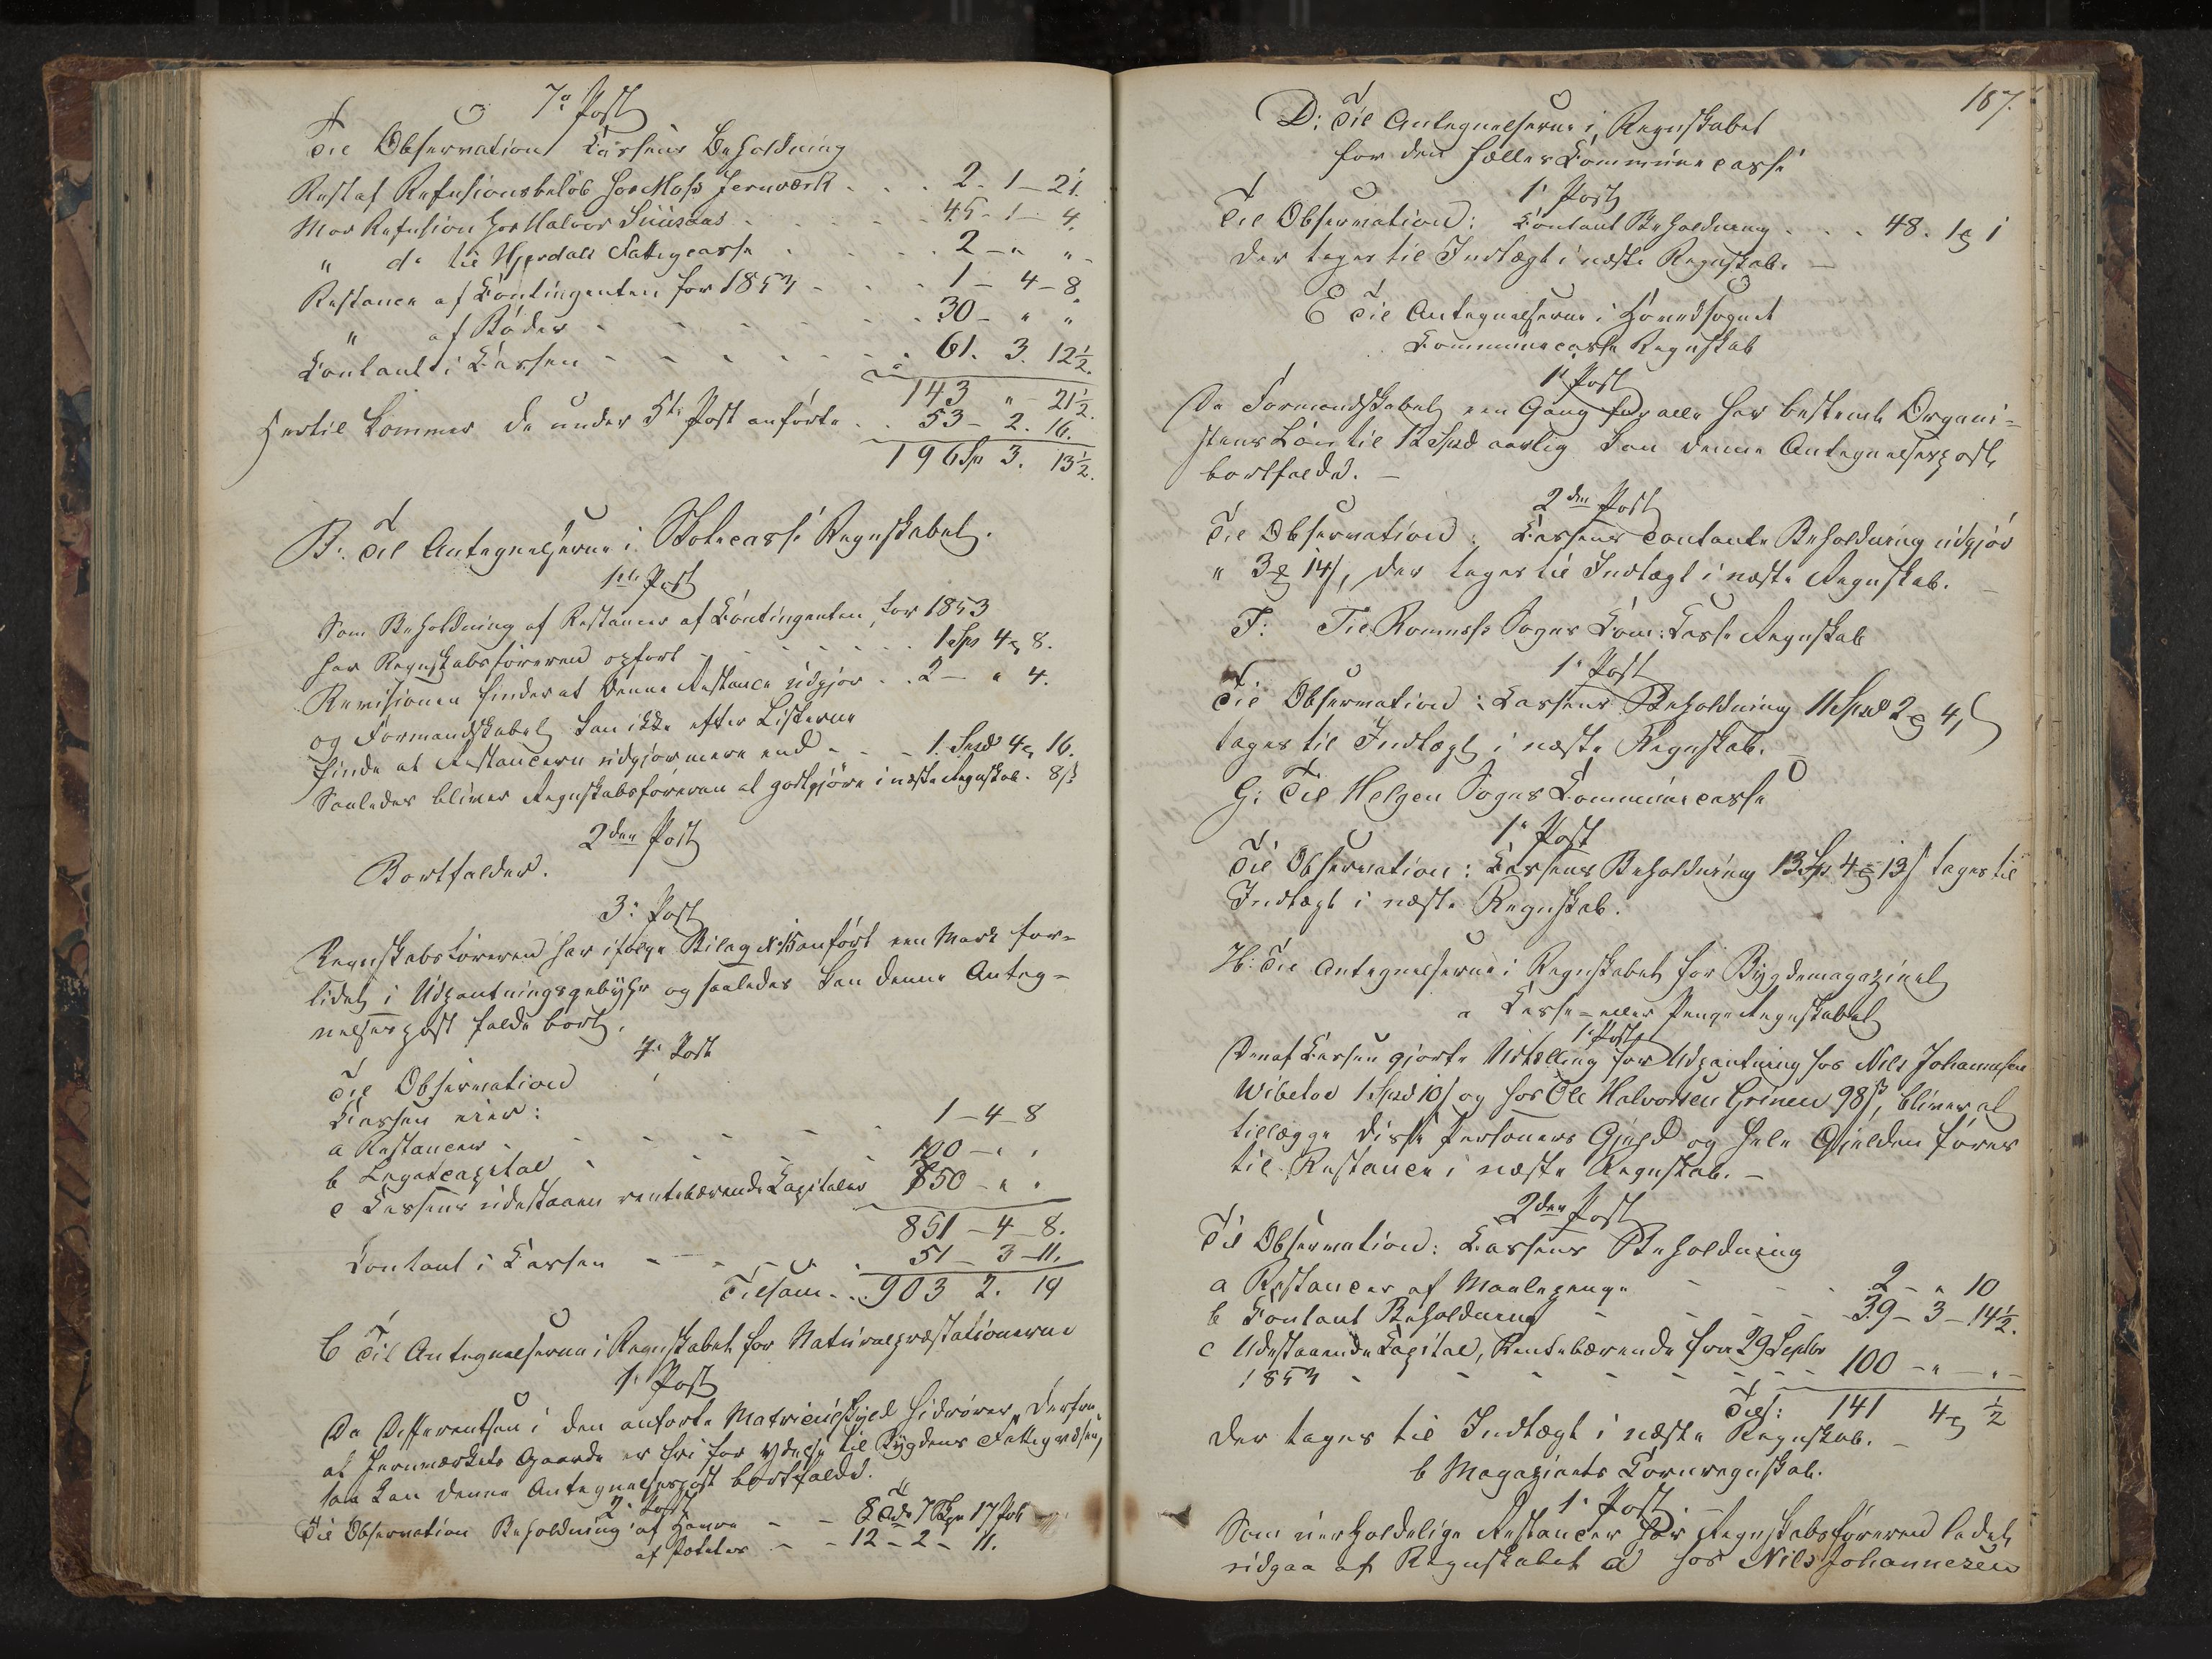 7de Post
Til Observation Cassens Beholdning
Rest af Refusionsbeløb hos Moss Jernværk . . . 2 - 1 - 21.
Mod Refusion hos Halvor Suusaas - - - 45 - 1 - 4.
" do til Hjerdals Fattigcasse - - - 2 - " "-
Restance af Contingenten for 1853 - - - 1 - 4 - 8
" af Bøder - - - 30 - " "
Contant i Cassen - - - 61. 3. 12½.
143 " - 21½.
Hertil kommer de under 5te Post anførte . . 53 - 2. 16.
196 Sp 3. 13½.
B: Til Antegnelserne i Skolecasse Regnskabet.
1ste Post
Som Beholdning af Restancer af Contingenten for 1853
har Regnskabsføreren opført - - - 1 Sp 4 ort 8.
Revisionen finder at denne Restance udgjør . . 2 - " 4.
og Formandskabet kan ikke efter Listerne
finde at Restancern udgjør mere end - - - 1. Spd 4 ort 16.
Saaledes bliver Regnskabsføreren at godtgjøre i næste Regnskab. 8 s
2den Post
Bortfalder.
3de Post
Regnskabsføreren har ifølge Bilag No 15 anført een Mark for-
lidet i Udpantningsgebyhr og saaledes kan denne Anteg-
nelsespost falde bort.
4de Post
Til Observation
Cassen eier:
a Restancer - - - 1 - 4 - 8
b Legatcapital - 100 - " "
c Cassens udestaaen rentebærende Capitaler 750 - " "
851 - 4 - 8.
Contant i Cassen - - - 51 - 3 - 11.
Tilsam . . . 903 2. 19
C Til Antegnelserne i Regnskabet for Naturalpræstationerne
1ste Post
Da Differentsen i den anførte Matriculskyld hidrører "derfra"
at Jernværkets Gaarde er fri for Ydelse til Bygdens Fattigvæsen,
saa kan denne Antegnelsespost bortfalde.
2den Post
Til Observation Beholdning af Havre - - 8 Tdr 7 Skp 17 Pot
af Poteter - - 12 - 2 - 11.
187.
D: Til Antegnelserne i Regnskabet
for den fælles Communecasse
1ste Post
Til Observation: Contant Beholdning . . . 48. 1 ort 1
der tages til Indtægt i næste Regnskab. -
E Til Antegnelserne i Hovedsognet
Communecasse Regnskab
1ste Post
Da Formandskabet een Gang for alle har bestemt Organi-
stens Løn til 12 Spd aarlig kan denne Antegnelsespost
bortfalde. -
2den Post
Til Observation: Cassens contante Beholdning udgjør
" 3 ort 14 s, der tages til Indtægt i næste Regnskab. -
F: Til Romnæs Sogns Com: Casse Regnskab
1ste Post
Til Observation: Cassens Beholdning 11 Spd 2 ort 4 s
tages til Indtægt i næste Regnskab.
G: Til Helgen Sogns Communecasse
1ste Post
Til Observation: Cassens Beholdning 13 Sp 4 ort 13 s tages til
Indtægt i næste Regnskab.
H: Til Antegnelserne i Regnskabet for Bygdemagazinet
a Casse- eller Penge Regnskabet
1ste Post
Den af Cassen gjorte Udtælling for Udpantning hos Nils Johannesen
Wibetoe 1 Spd 10 s og hos Ole Halvorsen Grinen 98 s, bliver at
tillægge disse Personers Gjeld og hele Gjelden føres
til Restance i næste Regnskab. -
2den Post
Til Observation: Cassens Beholdning
a Restancer af Maalepenge - - - 2 - " 10
b Contant Beholdning - - - 39 - 3 - 14½.
c Udestaaende Capital, Rentebærende fra 29 Septbr
1853 - - - 100 - " - " -
Tils: 141 4 ort ½
der tages til Indtægt i næste Regnskab. -
b Magazinets Cornregnskab.
1ste Post
Som uerholdelige Restancer har Regnskabsføreren ladet
udgaa af Regnskabet a) hos Nils Johannesen